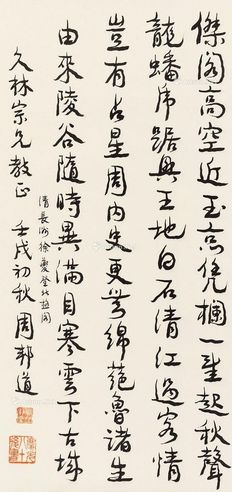 傑閣高空近玉京憑欄一望起秋聲
龍蟠虎踞興王地白石清紅過客情
豈有占星周內史更無綿蕝魯諸生
由來陵谷隨時異滿目寒雲下古城
清長洲徐夔登北極閣
久林宗兄教正 壬戌初秋周邦道